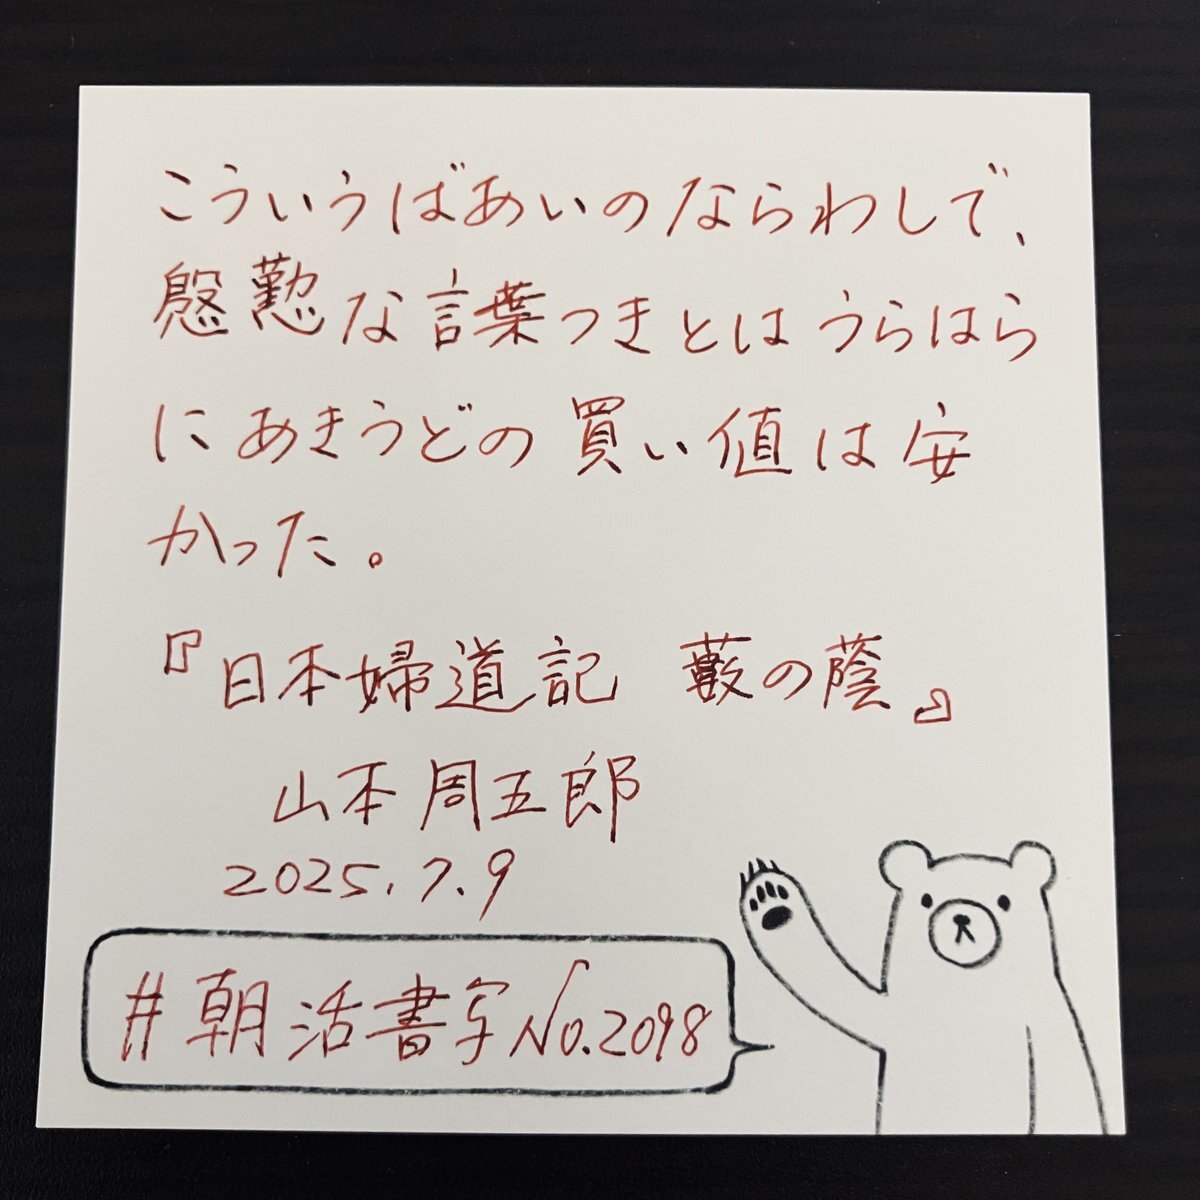 こういうばあいのならわしで、
慇懃な言葉つきとはうらはら
にあきうどの買い値は安
かった。
『日本婦道記 藪の蔭』
山本周五郎
2025.7.9
#朝活書写No.2098